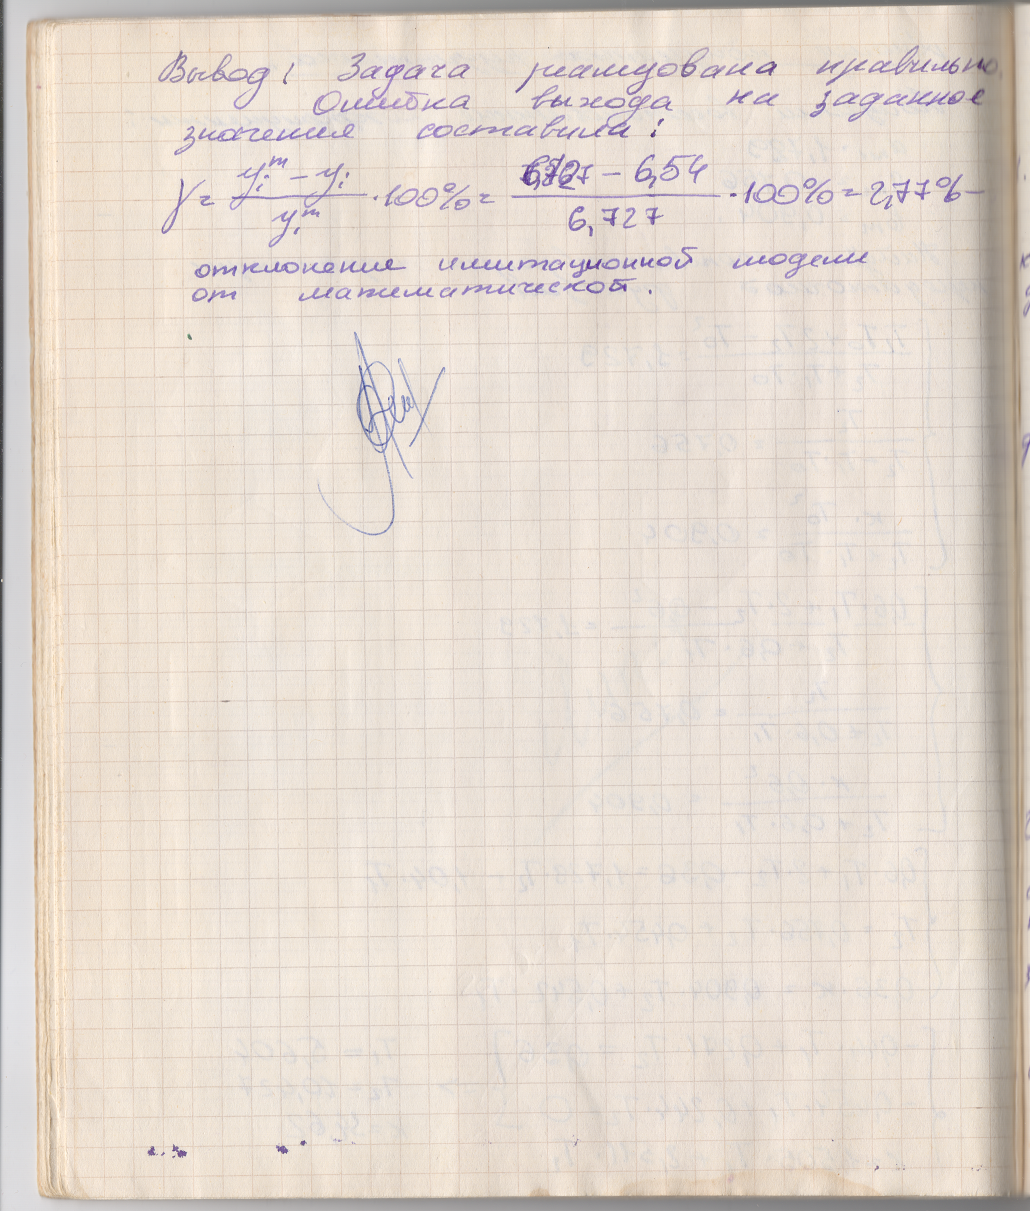 Вывод! Задача реализована правильно.
Ошибка выхода на заданное
значение составила:
γ = (yᵢᵐ − yᵢ) / yᵢᵐ · 100% = (6,727 − 6,54) / 6,727 · 100% = 2,77% –
отклонение имитационной модели
от математической.